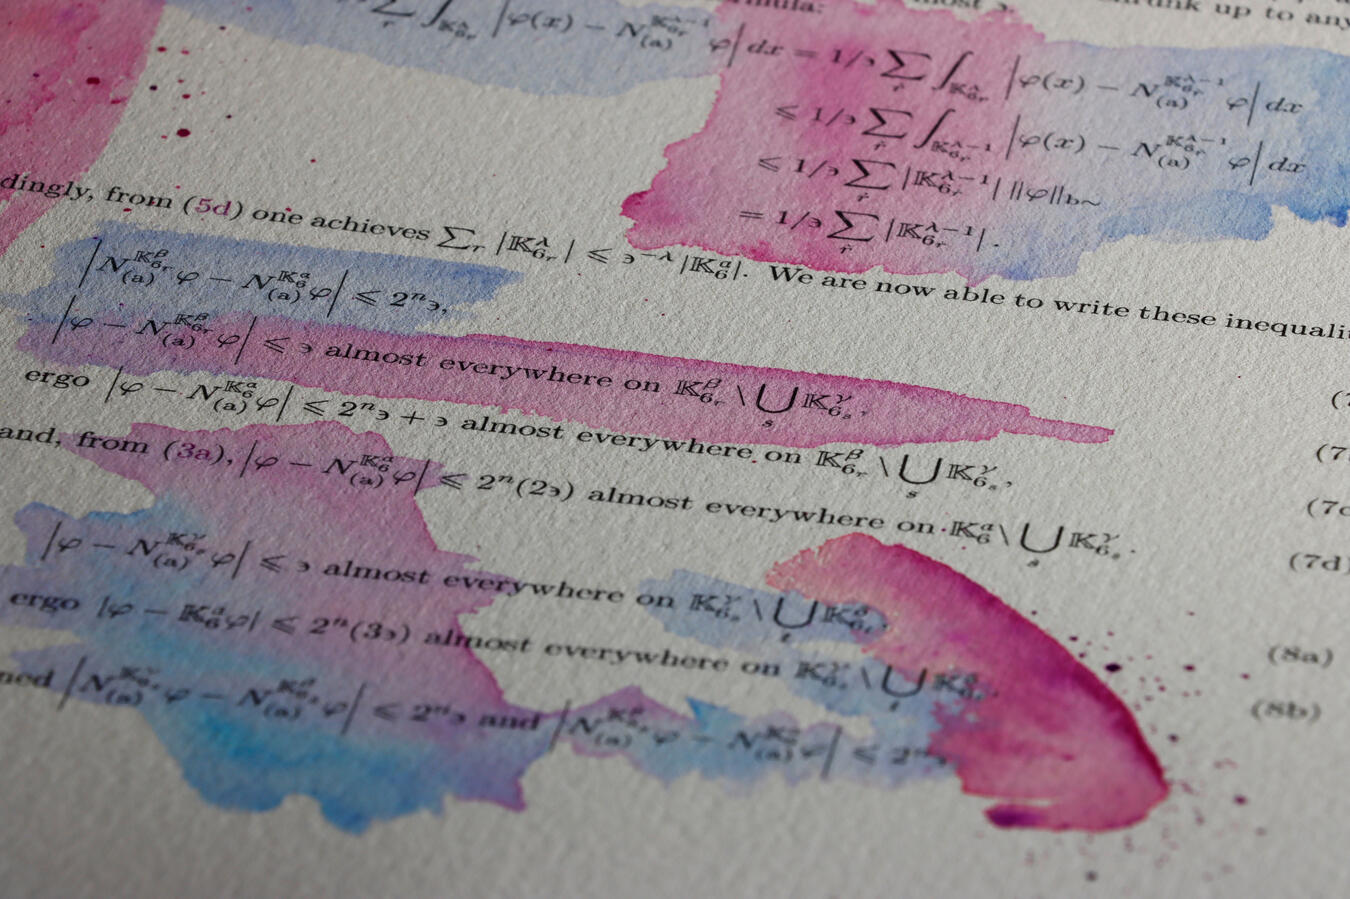 rmula: most ɜ shrunk up to any
∑_r ∫_{𝕂^λ_{6_r}} |φ(x) − N^{𝕂^{λ−1}_{6_r}}_{(a)} φ| dx = 1/ɜ ∑_r ∫_{𝕂^λ_{6_r}} |φ(x) − N^{𝕂^{λ−1}_{6_r}}_{(a)} φ| dx
⩽ 1/ɜ ∑_r ∫_{𝕂^{λ−1}_{6_r}} |φ(x) − N^{𝕂^{λ−1}_{6_r}}_{(a)} φ| dx
⩽ 1/ɜ ∑_r |𝕂^{λ−1}_{6_r}| ||φ||_{b~}
= 1/ɜ ∑_r |𝕂^{λ−1}_{6_r}|.
dingly, from (5d) one achieves ∑_r |𝕂^λ_{6_r}| ⩽ ɜ^{−λ} |𝕂^a_6|. We are now able to write these inequalit
|N^{𝕂^β_{6_r}}_{(a)} φ − N^{𝕂^a_6}_{(a)} φ| ⩽ 2ⁿɜ,
|φ − N^{𝕂^β_{6_r}}_{(a)} φ| ⩽ ɜ almost everywhere on 𝕂^β_{6_r} \ ⋃_s 𝕂^γ_{6_s}, (7
ergo |φ − N^{𝕂^a_6}_{(a)} φ| ⩽ 2ⁿɜ + ɜ almost everywhere on 𝕂^β_{6_r} \ ⋃_s 𝕂^γ_{6_s}, (7
and, from (3a), |φ − N^{𝕂^a_6}_{(a)} φ| ⩽ 2ⁿ(2ɜ) almost everywhere on 𝕂^a_6 \ ⋃_s 𝕂^γ_{6_s}. (7c
(7d)
|φ − N^{𝕂^γ_{6_s}}_{(a)} φ| ⩽ ɜ almost everywhere on 𝕂^γ_{6_s} \ ⋃_t 𝕂^δ_{6_t}, (8a)
ergo |φ − 𝕂^a_6 φ| ⩽ 2ⁿ(3ɜ) almost everywhere on 𝕂^γ_{6_s} \ ⋃_t 𝕂^δ_{6_t}, (8b)
ned |N^{𝕂^γ_{6_s}}_{(a)} φ − N^{𝕂^β_{6_r}}_{(a)} φ| ⩽ 2ⁿɜ and |N^{𝕂^β_{6_r}}_{(a)} φ − N^{𝕂^a_6}_{(a)} φ| ⩽ 2ⁿɜ,